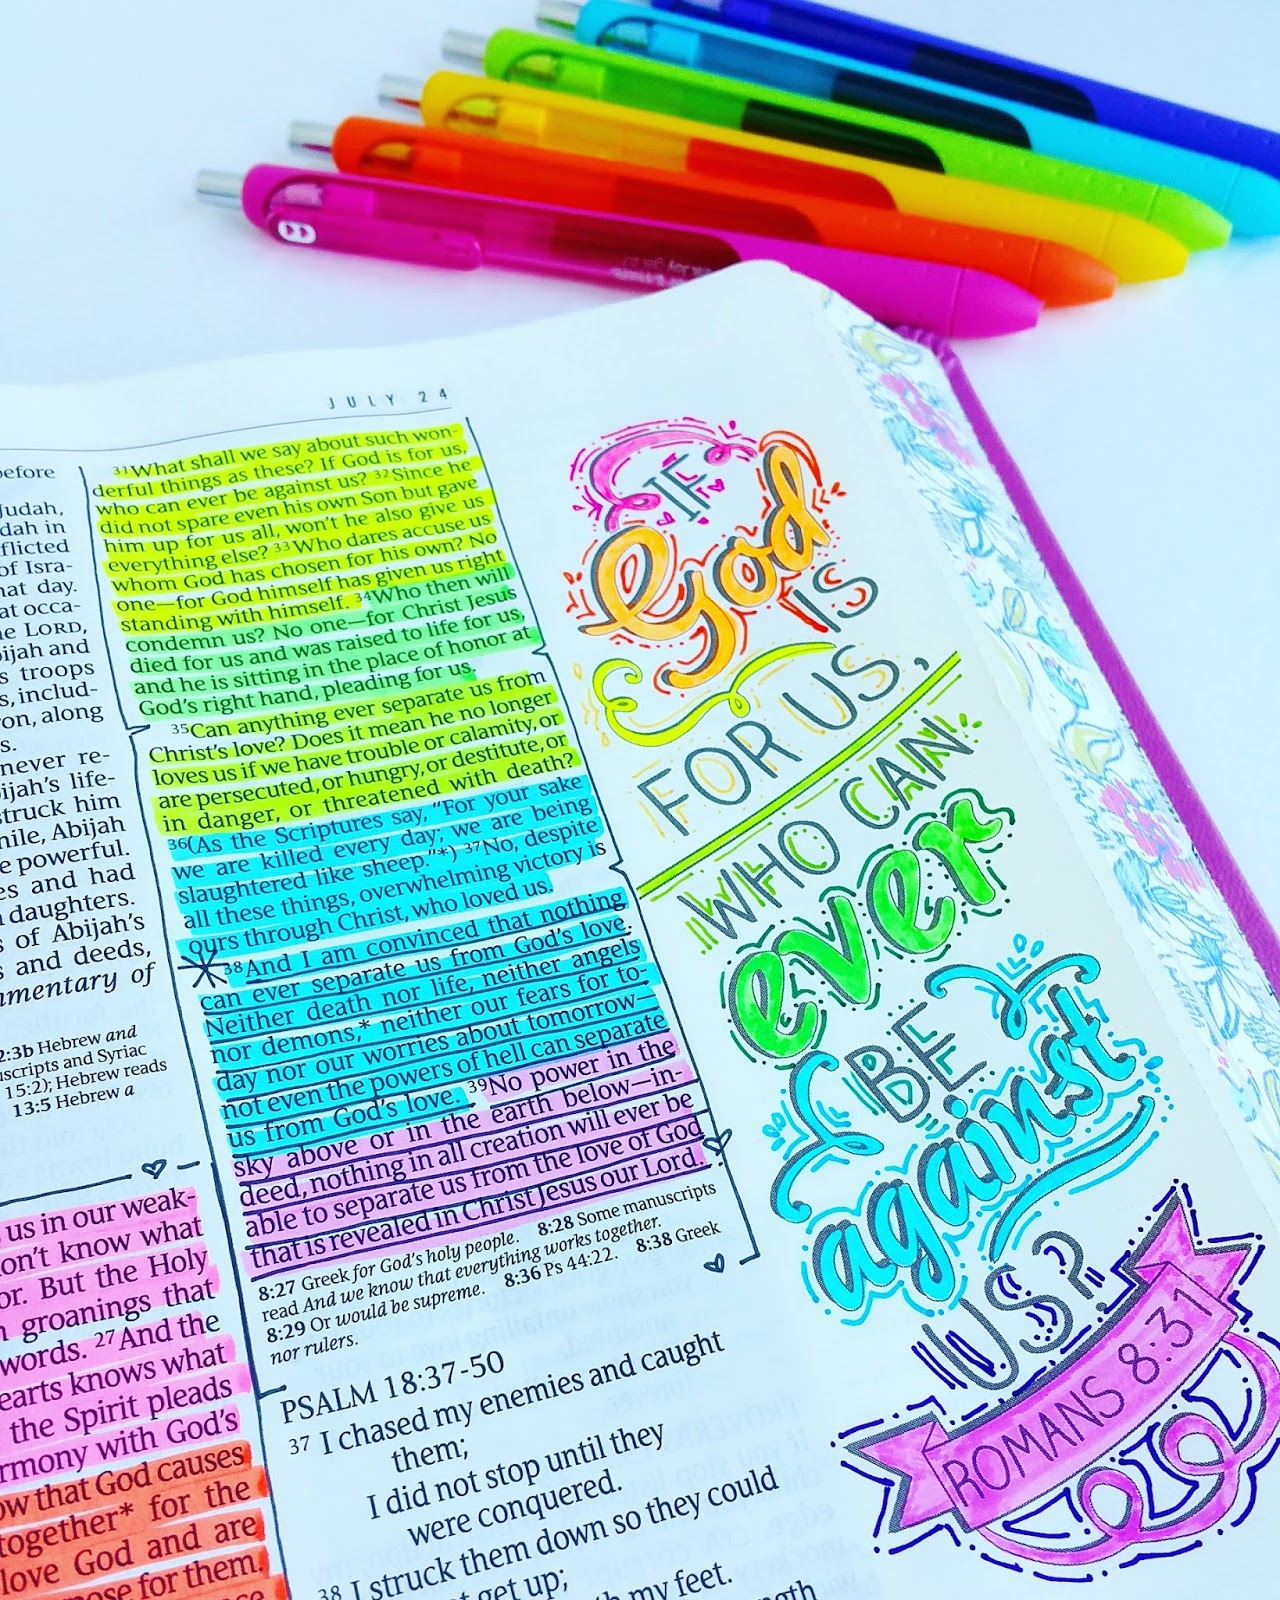 JULY 24
before
Judah,
dah in
flicted
of Isra-
hat day.
at occa-
he LORD,
bijah and
s troops
s, includ-
ron, along
s.
never re-
bijah's life-
struck him
hile, Abijah
e powerful.
es and had
daughters.
s of Abijah's
s and deeds,
mmentary of
2:3b Hebrew and
uscripts and Syriac
15:2); Hebrew reads
13:5 Hebrew a
us in our weak-
on't know what
or. But the Holy
groanings that
words. 27 And the
earts knows what
the Spirit pleads
rmony with God's
ow that God causes
together* for the
love God and are
pose for them.
31 What shall we say about such won-
derful things as these? If God is for us,
who can ever be against us? 32 Since he
did not spare even his own Son but gave
him up for us all, won't he also give us
everything else? 33 Who dares accuse us
whom God has chosen for his own? No
one—for God himself has given us right
standing with himself. 34 Who then will
condemn us? No one—for Christ Jesus
died for us and was raised to life for us,
and he is sitting in the place of honor at
God's right hand, pleading for us.
35 Can anything ever separate us from
Christ's love? Does it mean he no longer
loves us if we have trouble or calamity, or
are persecuted, or hungry, or destitute, or
in danger, or threatened with death?
36 (As the Scriptures say, "For your sake
we are killed every day; we are being
slaughtered like sheep."*) 37 No, despite
all these things, overwhelming victory is
ours through Christ, who loved us.
38 And I am convinced that nothing
can ever separate us from God's love.
Neither death nor life, neither angels
nor demons,* neither our fears for to-
day nor our worries about tomorrow—
not even the powers of hell can separate
us from God's love. 39 No power in the
sky above or in the earth below—in-
deed, nothing in all creation will ever be
able to separate us from the love of God
that is revealed in Christ Jesus our Lord.
8:27 Greek for God's holy people. 8:28 Some manuscripts
read And we know that everything works together.
8:29 Or would be supreme. 8:36 Ps 44:22. 8:38 Greek
nor rulers.
PSALM 18:37-50
37 I chased my enemies and caught
them;
I did not stop until they
were conquered.
38 I struck them down so they could
not get up;
my feet.
IF
God
IS
FOR US,
WHO CAN
ever
BE
against
US?
ROMANS 8:31